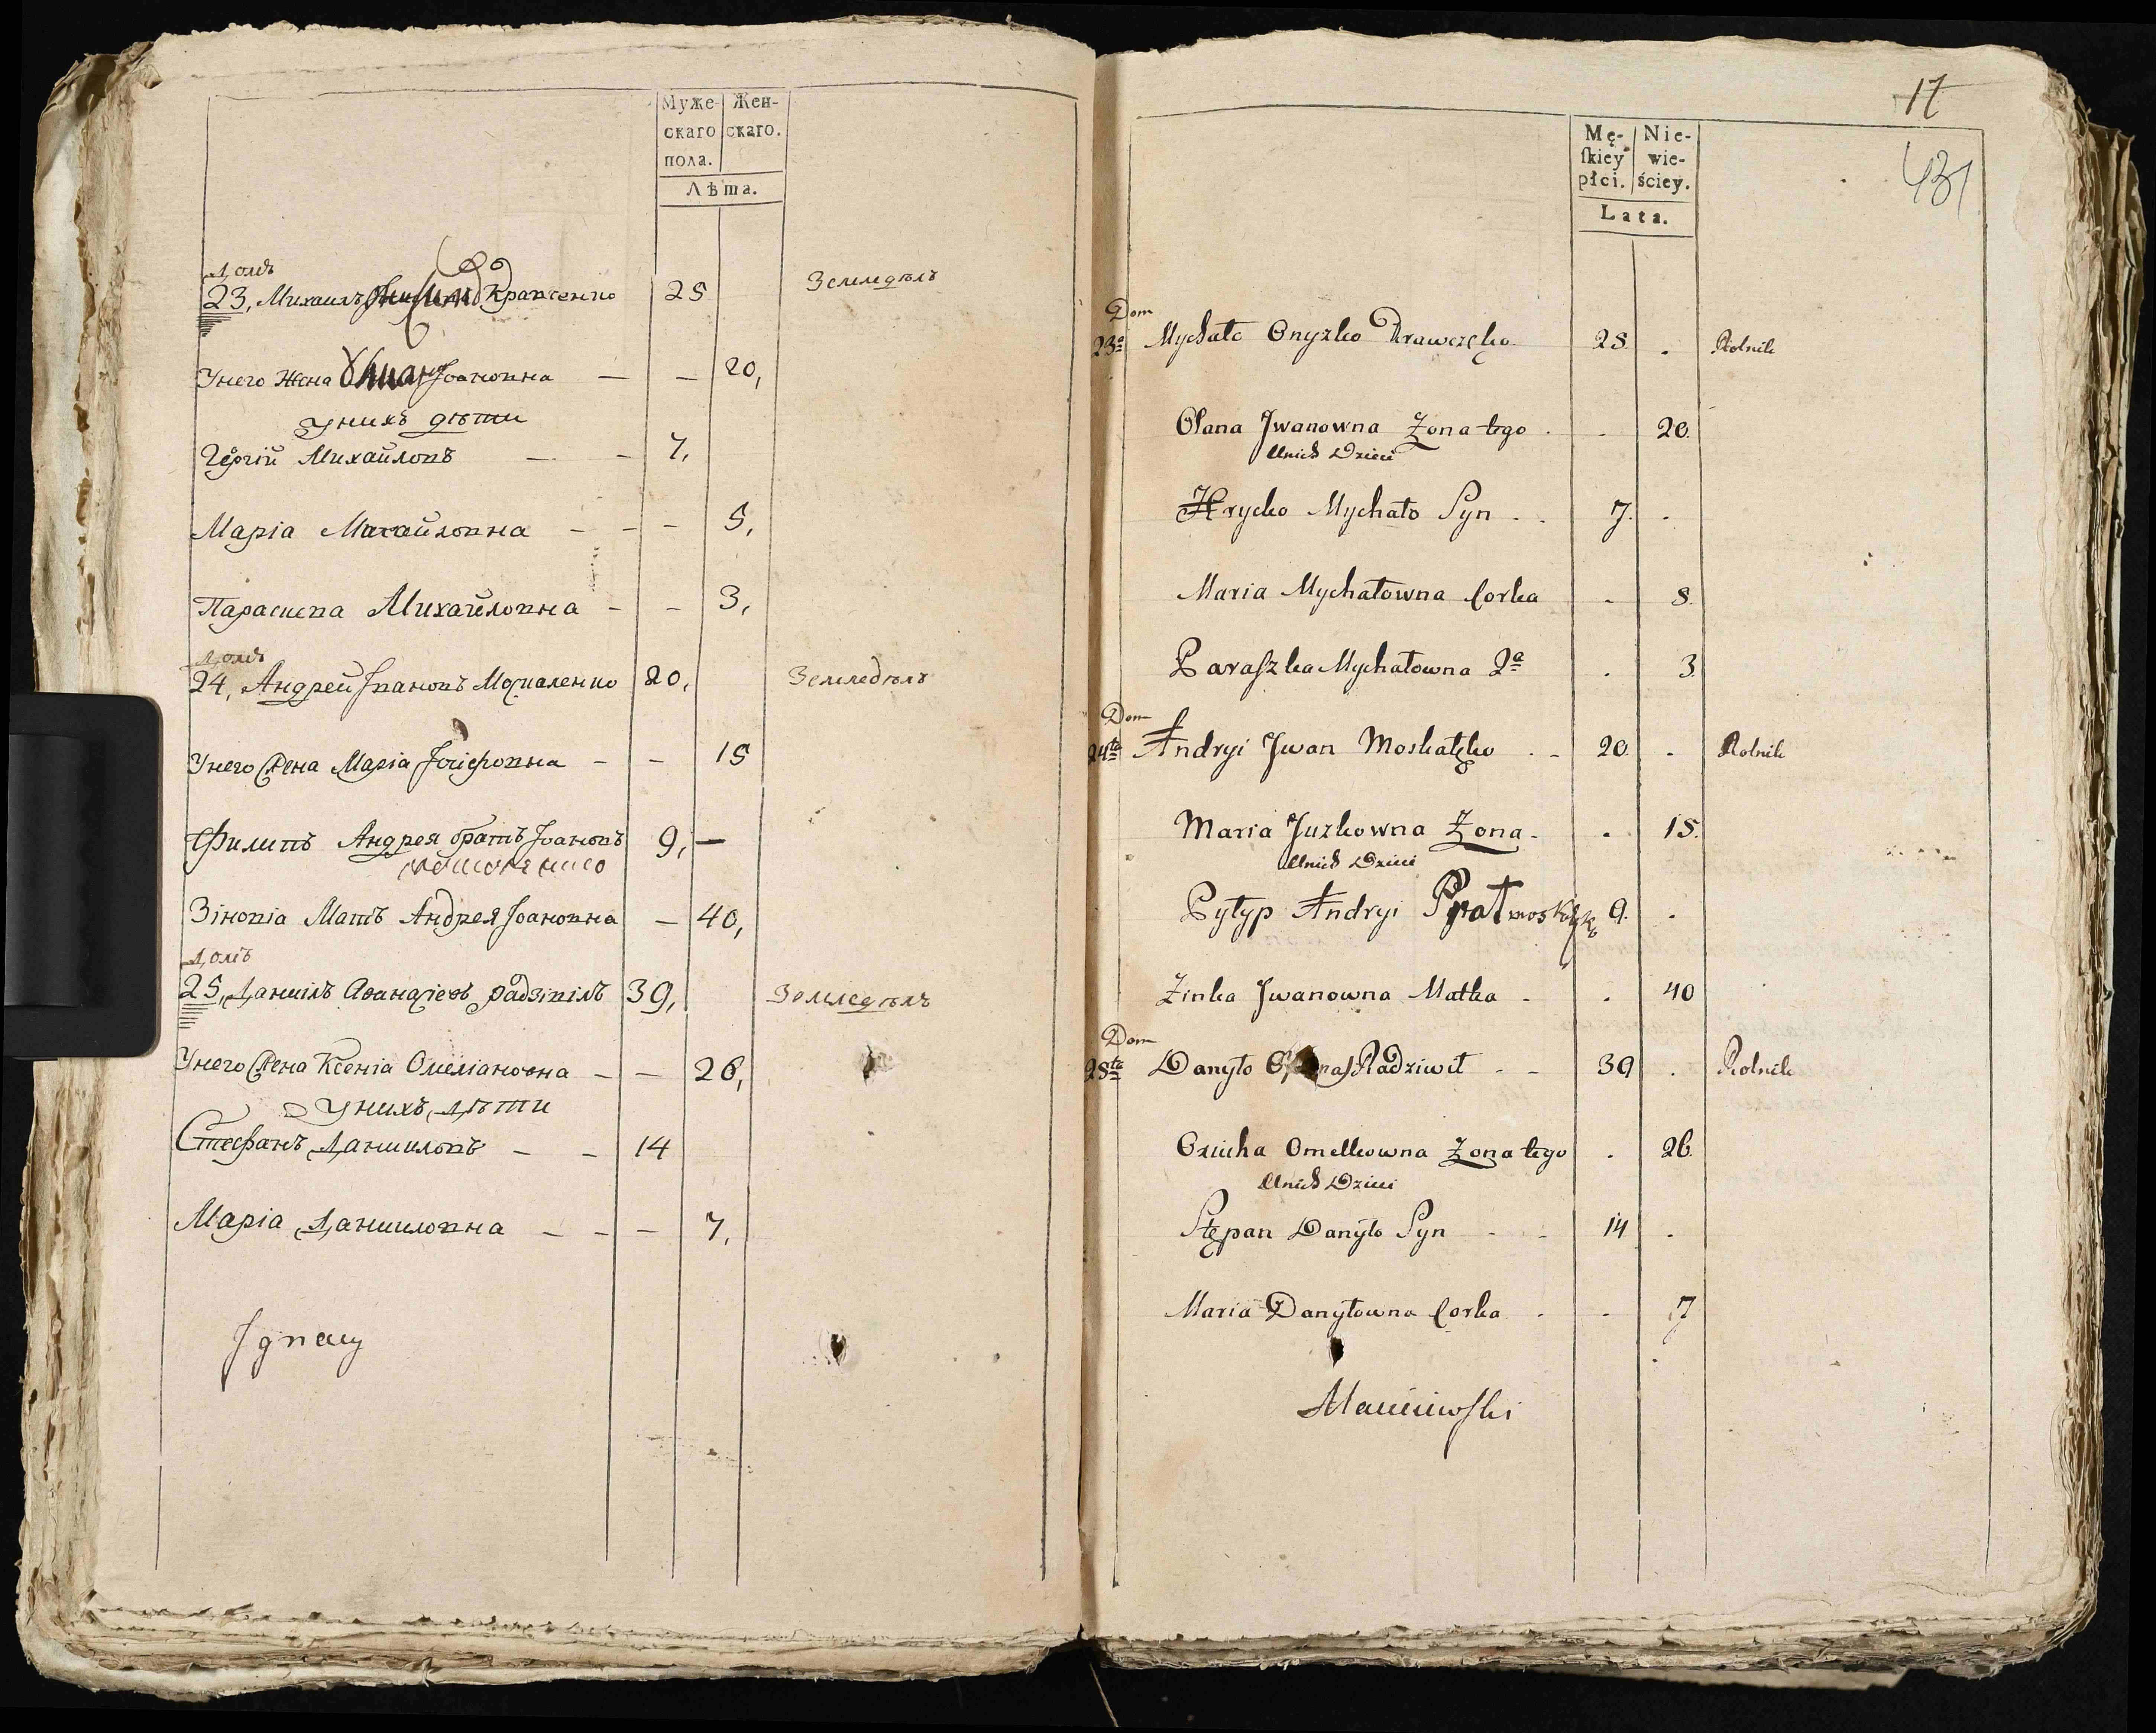 Муже- Жен-
скаго скаго.
пола.
Лѣта.
Домъ
23, Михаилъ Кравченко 25 Земледѣлъ
Унего жена Іоановна — — 20,
Унихъ дѣти
Георгій Михайловъ — — 7,
Марія Михайловна — — — 5,
Параскева Михайловна — — 3,
Домъ
24, Андрей Івановъ Москаленко 20, Земледѣлъ
Унего жена Марія Іосіфовна — — 15
Филипъ Андрея братъ Іоановъ 9, —
Зіновія Мать Андрея Іоановна — 40,
Домъ
25, Даниілъ Афанасіевъ Радзівілъ 39, Земледѣлъ
Унего жена Ксенія Омеліановна — — 26,
Унихъ дѣти
Стефанъ Даниловъ — — 14
Марія Даниловна — — — 7,
Ignacy
17
431
Mę- Nie-
ſkiey wie-
płci. ściey.
Lata.
Dom
23a Mychało Onyzko Krawczęko 25 . Rolnik
Olana Jwanowna Zona tego . . 20.
Unich Dzieci
Hrycko Mychało Syn . . 7. .
Maria Mychałowna Corka . 5.
Paraszka Mychałowna 2a . 3
Dom
24ta Andryi Jwan Moskalęko . - 20. . Rolnik
Maria Juzkowna Zona - . 15.
Unich Dzieci
Pylyp Andryi Brat moskalęko 9. .
Zinka Jwanowna Matka - . 40
Dom
25ta Danyło Radziwił - - 39 . Rolnik
Oxiuha Omelkowna Zona tego . 26.
Unich Dzieci
Stępan Danyło Syn - - 14 .
Maria Danyłowna Corka . - 7
Macieiowski